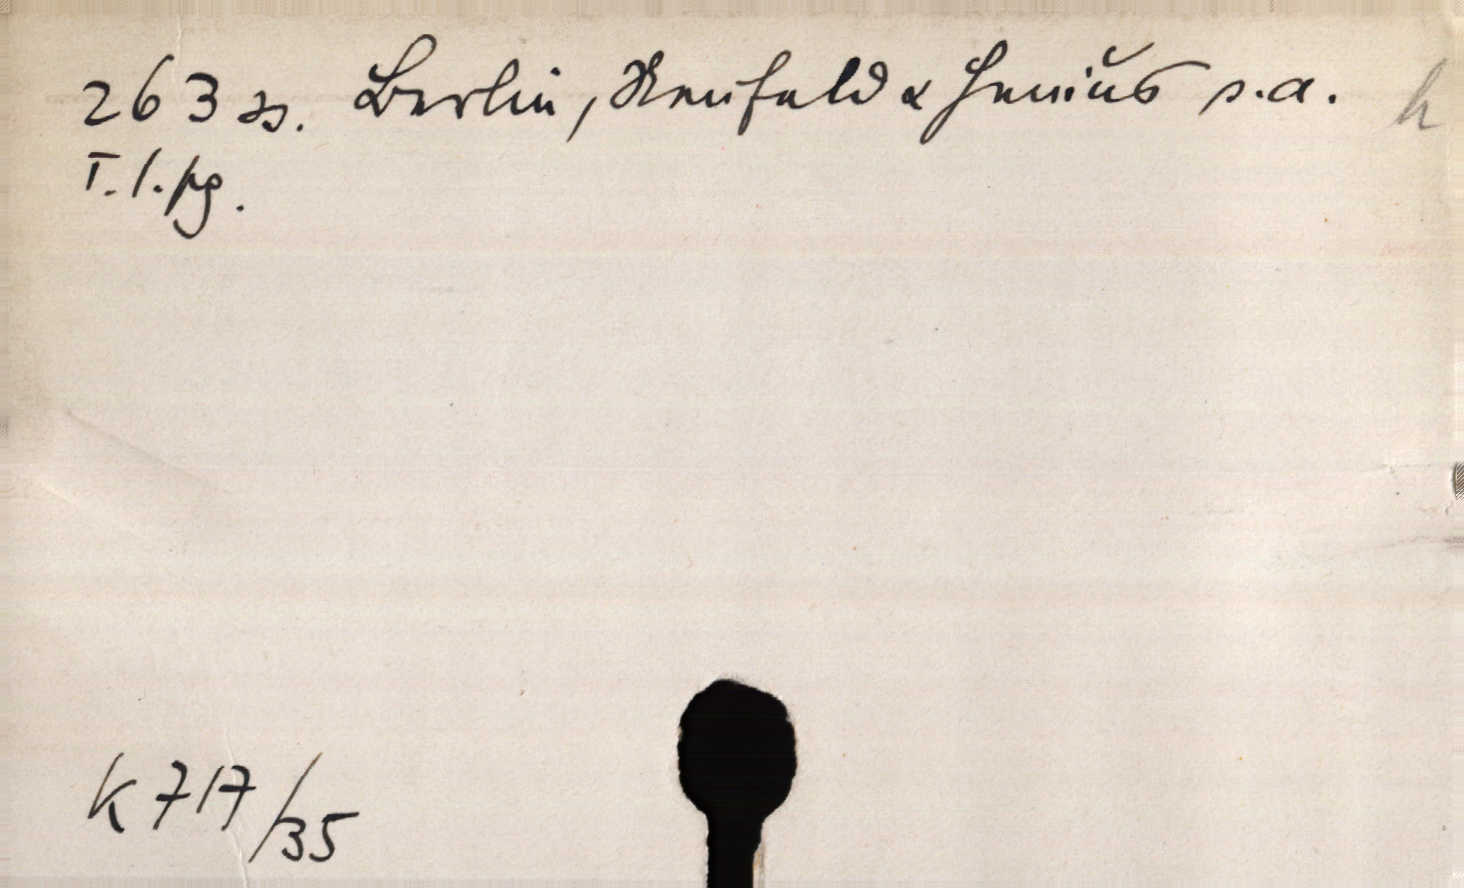 263 SS. Berlin, Neufeld & Henius s.a. h
T. l. pg.
K 717/35